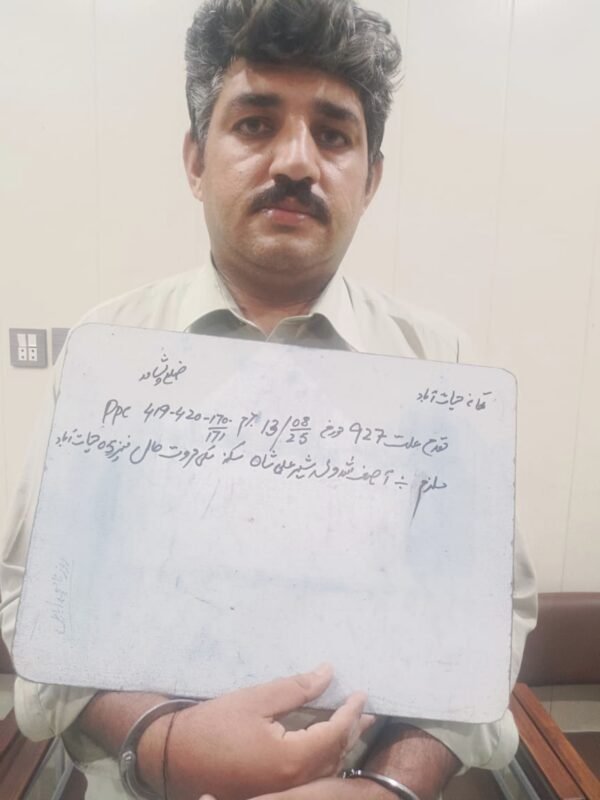 تھانہ حیات آباد ضلع پشاور
مقدمہ علت 927 مورخہ 13/08/25 جرم 419-420-170-171 PPC
ملزم :- آصف شاہ ولد شیر علی شاہ سکنہ لکی مروت حال فیز حیات آباد